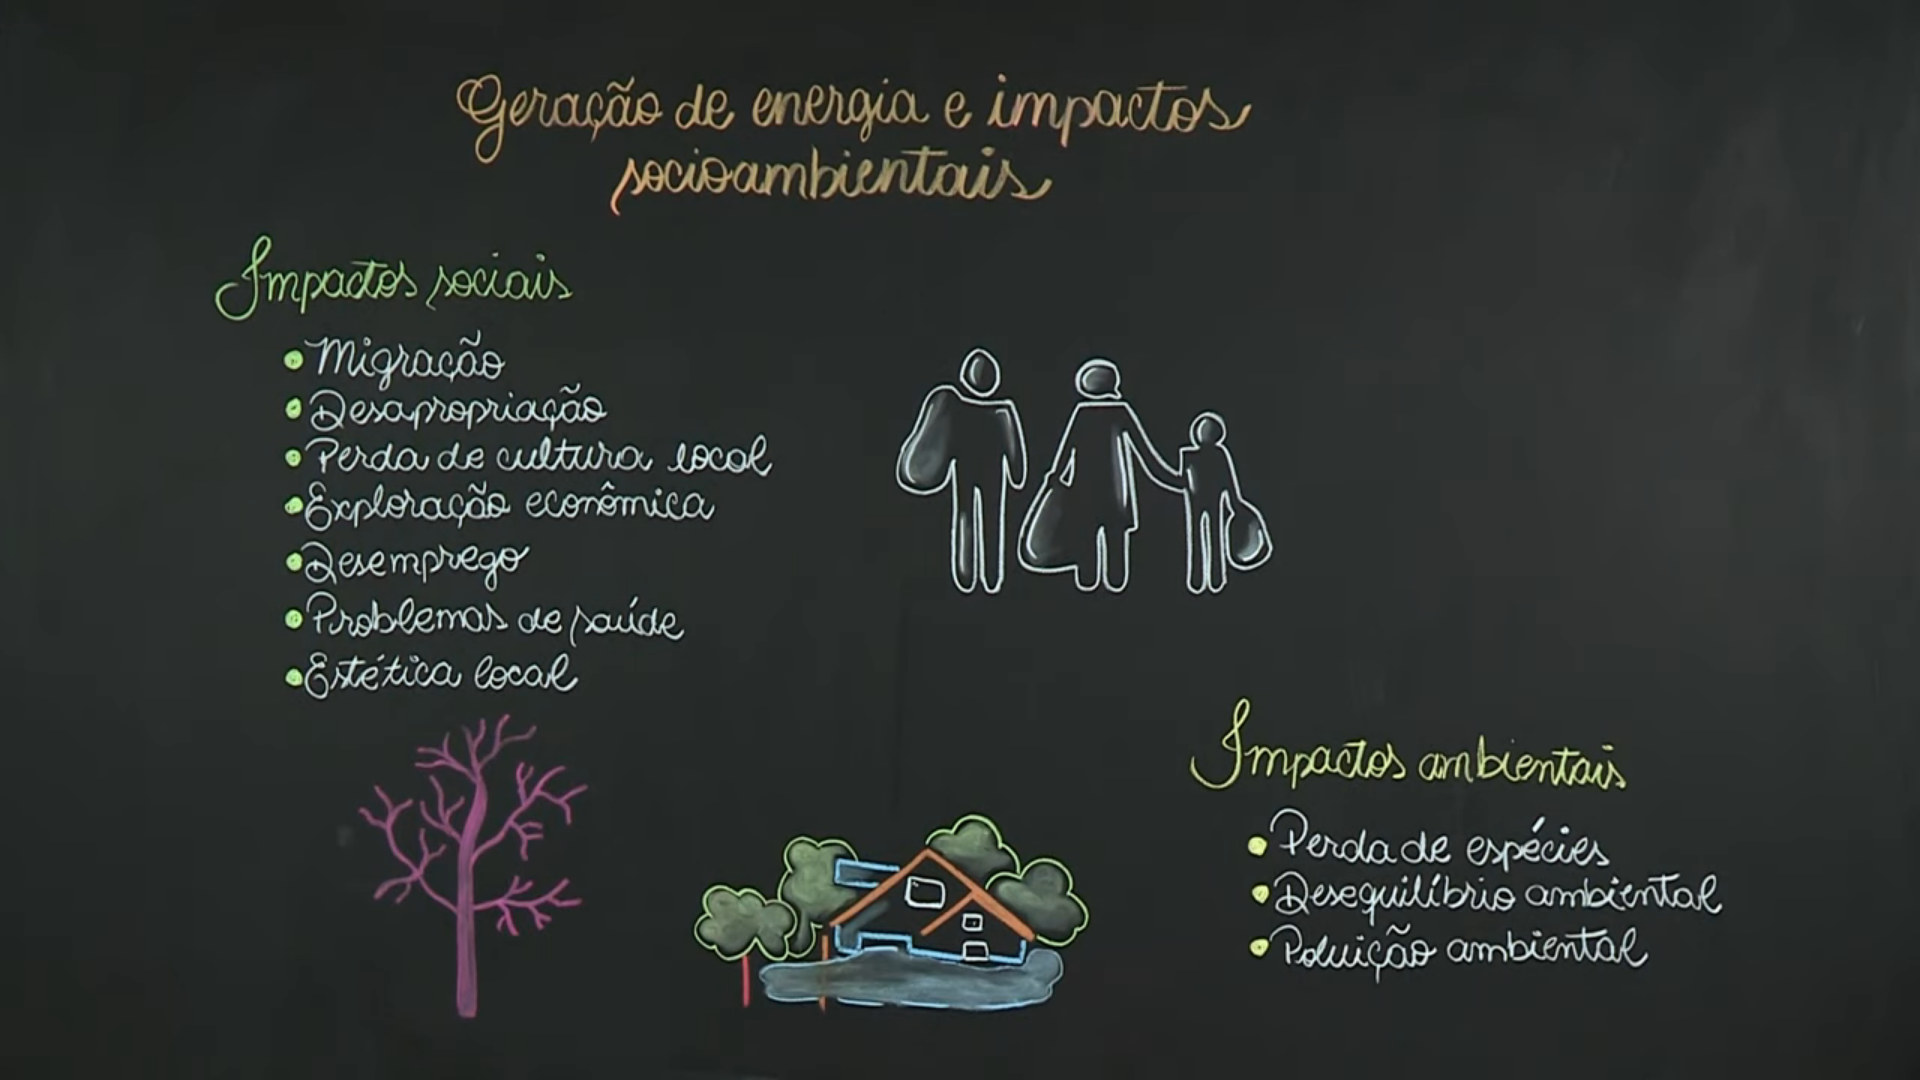 Geração de energia e impactos
socioambientais
Impactos sociais
• Migração
• Desapropriação
• Perda de cultura local
• Exploração econômica
• Desemprego
• Problemas de saúde
• Estética local
Impactos ambientais
• Perda de espécies
• Desequilíbrio ambiental
• Poluição ambiental